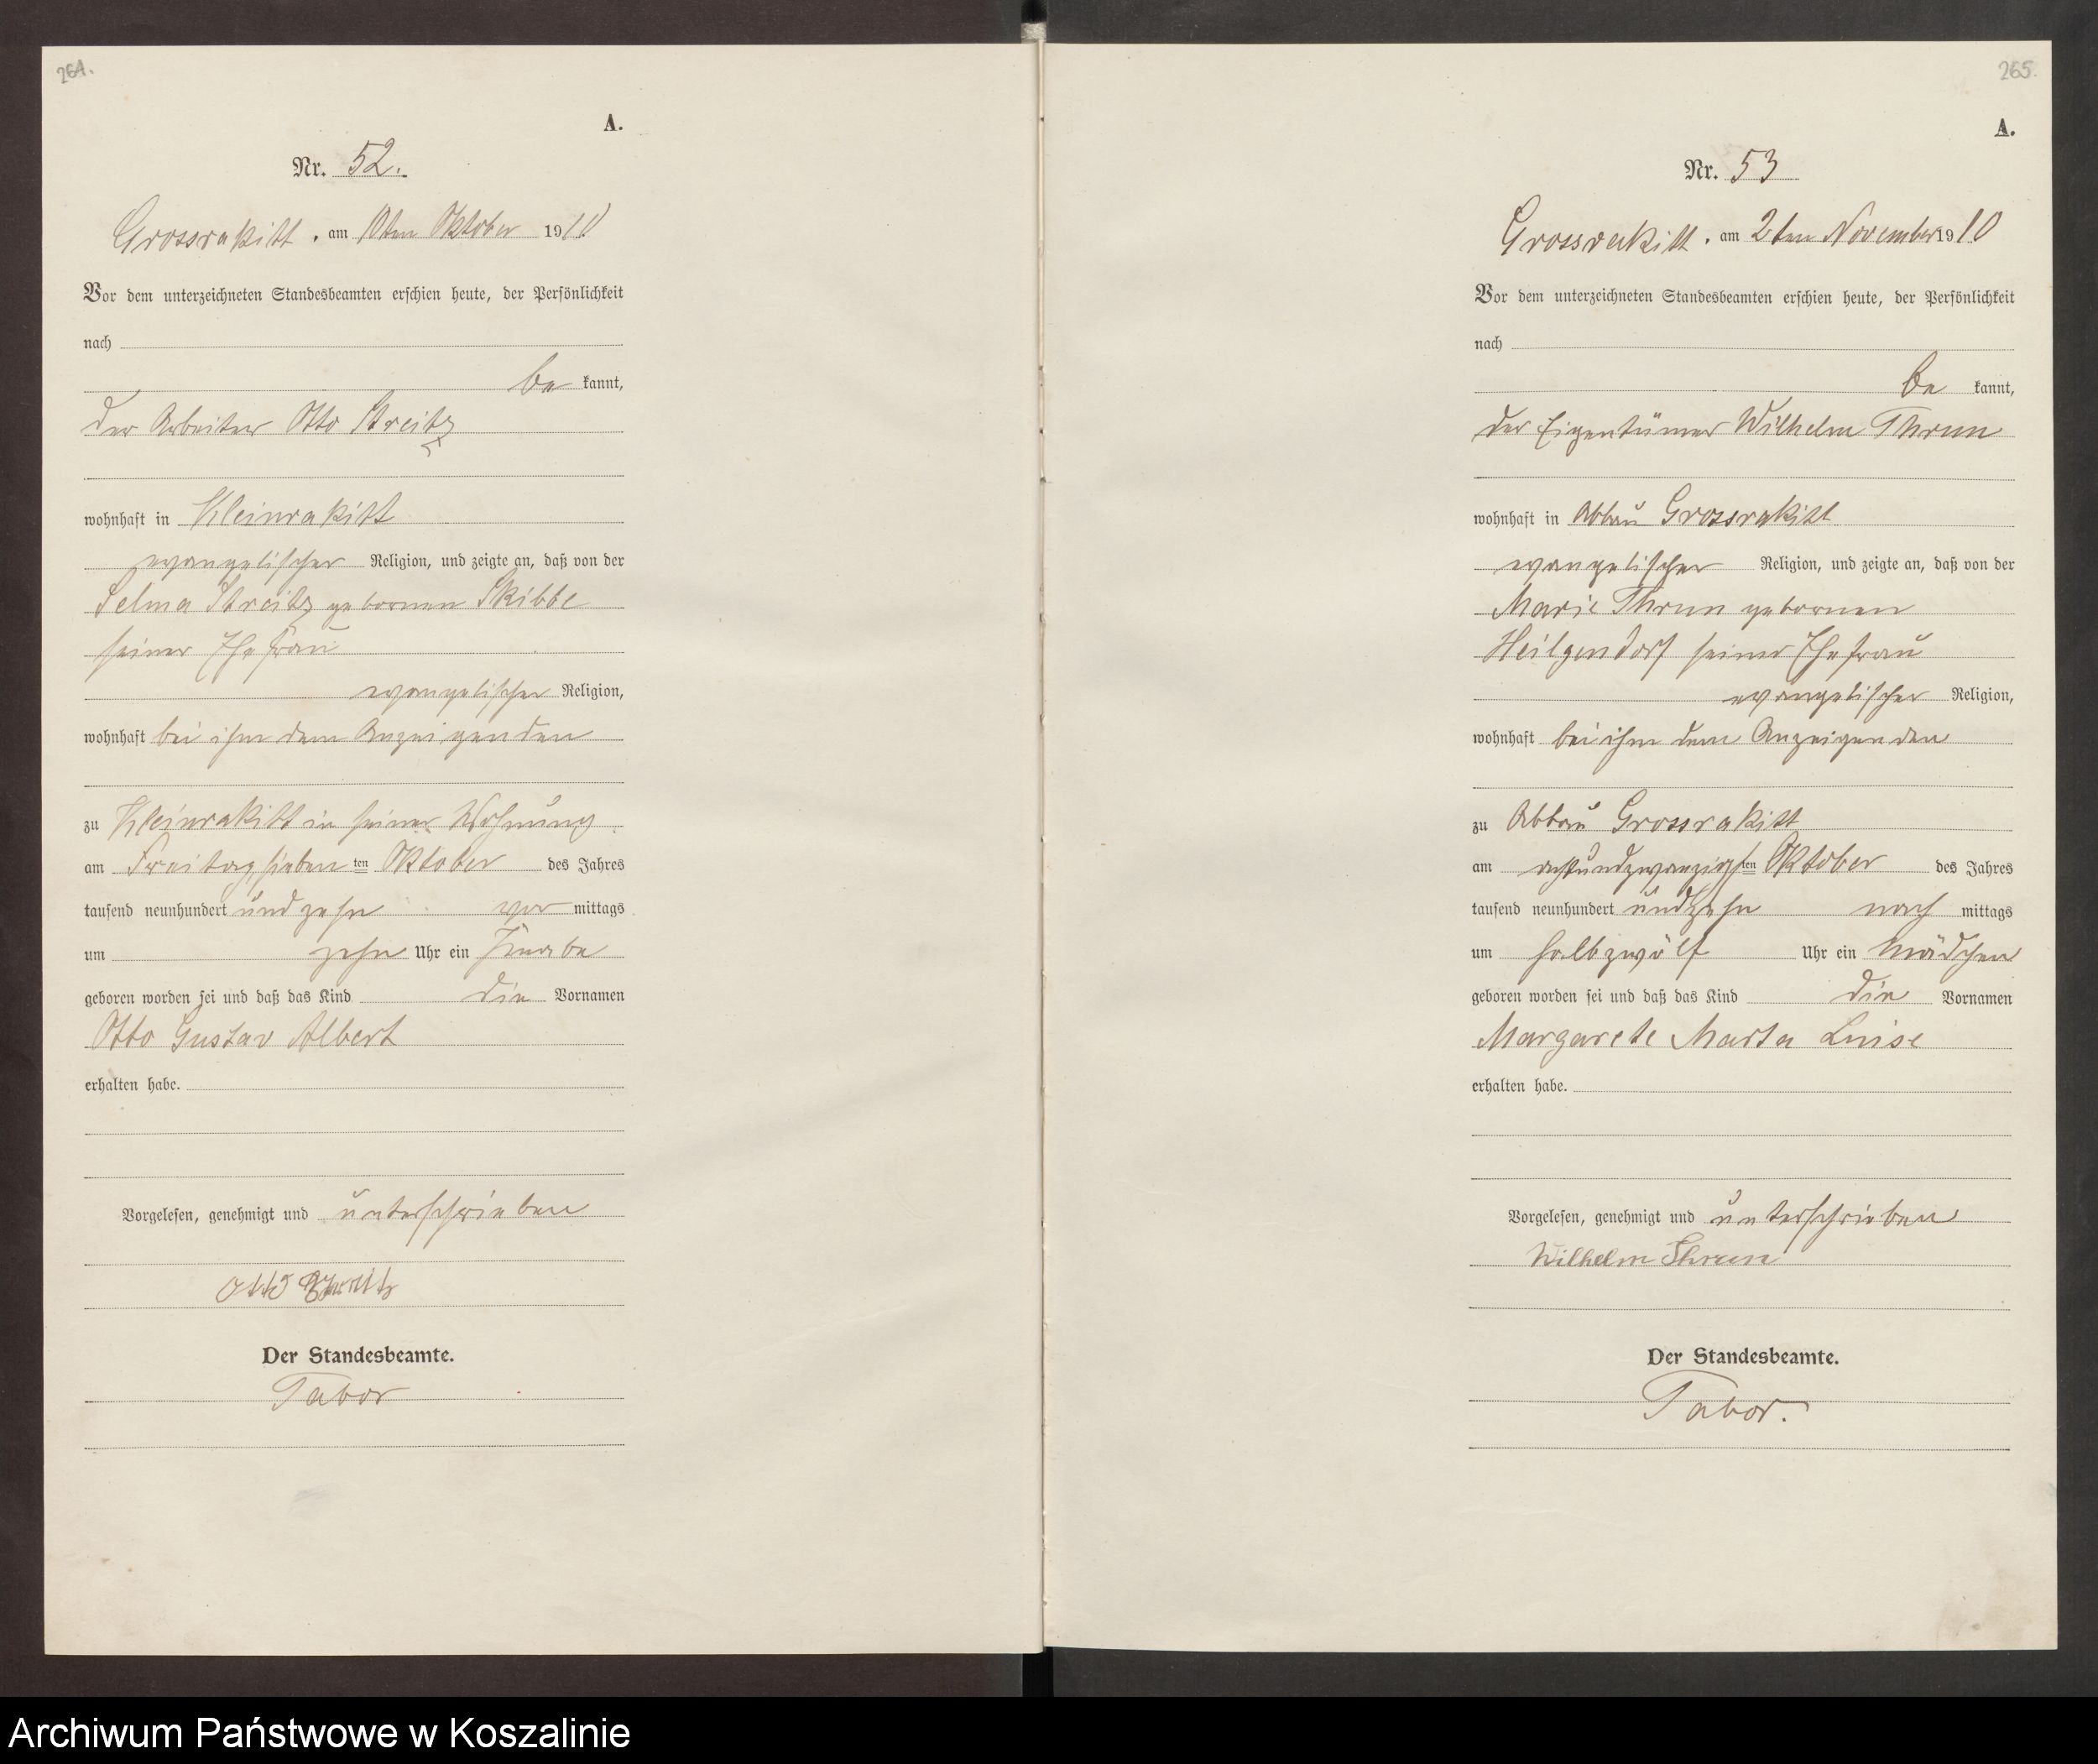 264.
A.
Nr. 52.
Grossrakitt, am 10ten Oktober 1910
Vor dem unterzeichneten Standesbeamten erschien heute, der Persönlichkeit
nach
be kannt,
der Arbeiter Otto Streitz
wohnhaft in Kleinrakitt
evangelischer Religion, und zeigte an, daß von der
Selma Streitz gebornen Skibbe
seiner Ehefrau
evangelischer Religion,
wohnhaft bei ihm dem Anzeigenden
zu Kleinrakitt in seiner Wohnung
am Freitag, sieben ten Oktober des Jahres
tausend neunhundert und zehn vor mittags
um zehn Uhr ein Knabe
geboren worden sei und daß das Kind die Vornamen
Otto Gustav Albert
erhalten habe.
Vorgelesen, genehmigt und unterschrieben
Otto Streitz
Der Standesbeamte.
Tabor
265.
A.
Nr. 53
Grossrakitt, am 2ten November 1910
Vor dem unterzeichneten Standesbeamten erschien heute, der Persönlichkeit
nach
be kannt,
der Eigentümer Wilhelm Thrun
wohnhaft in Abbau Grossrakitt
evangelischer Religion, und zeigte an, daß von der
Marie Thrun gebornen
Heilgendorf seiner Ehefrau
evangelischer Religion,
wohnhaft bei ihm dem Anzeigenden
zu Abbau Grossrakitt
am achtundzwanzigsten Oktober des Jahres
tausend neunhundert undzehn nach mittags
um halbzwölf Uhr ein Mädchen
geboren worden sei und daß das Kind die Vornamen
Margarete Marta Luise
erhalten habe.
Vorgelesen, genehmigt und unterschrieben
Wilhelm Thrun
Der Standesbeamte.
Tabor.
Archiwum Państwowe w Koszalinie